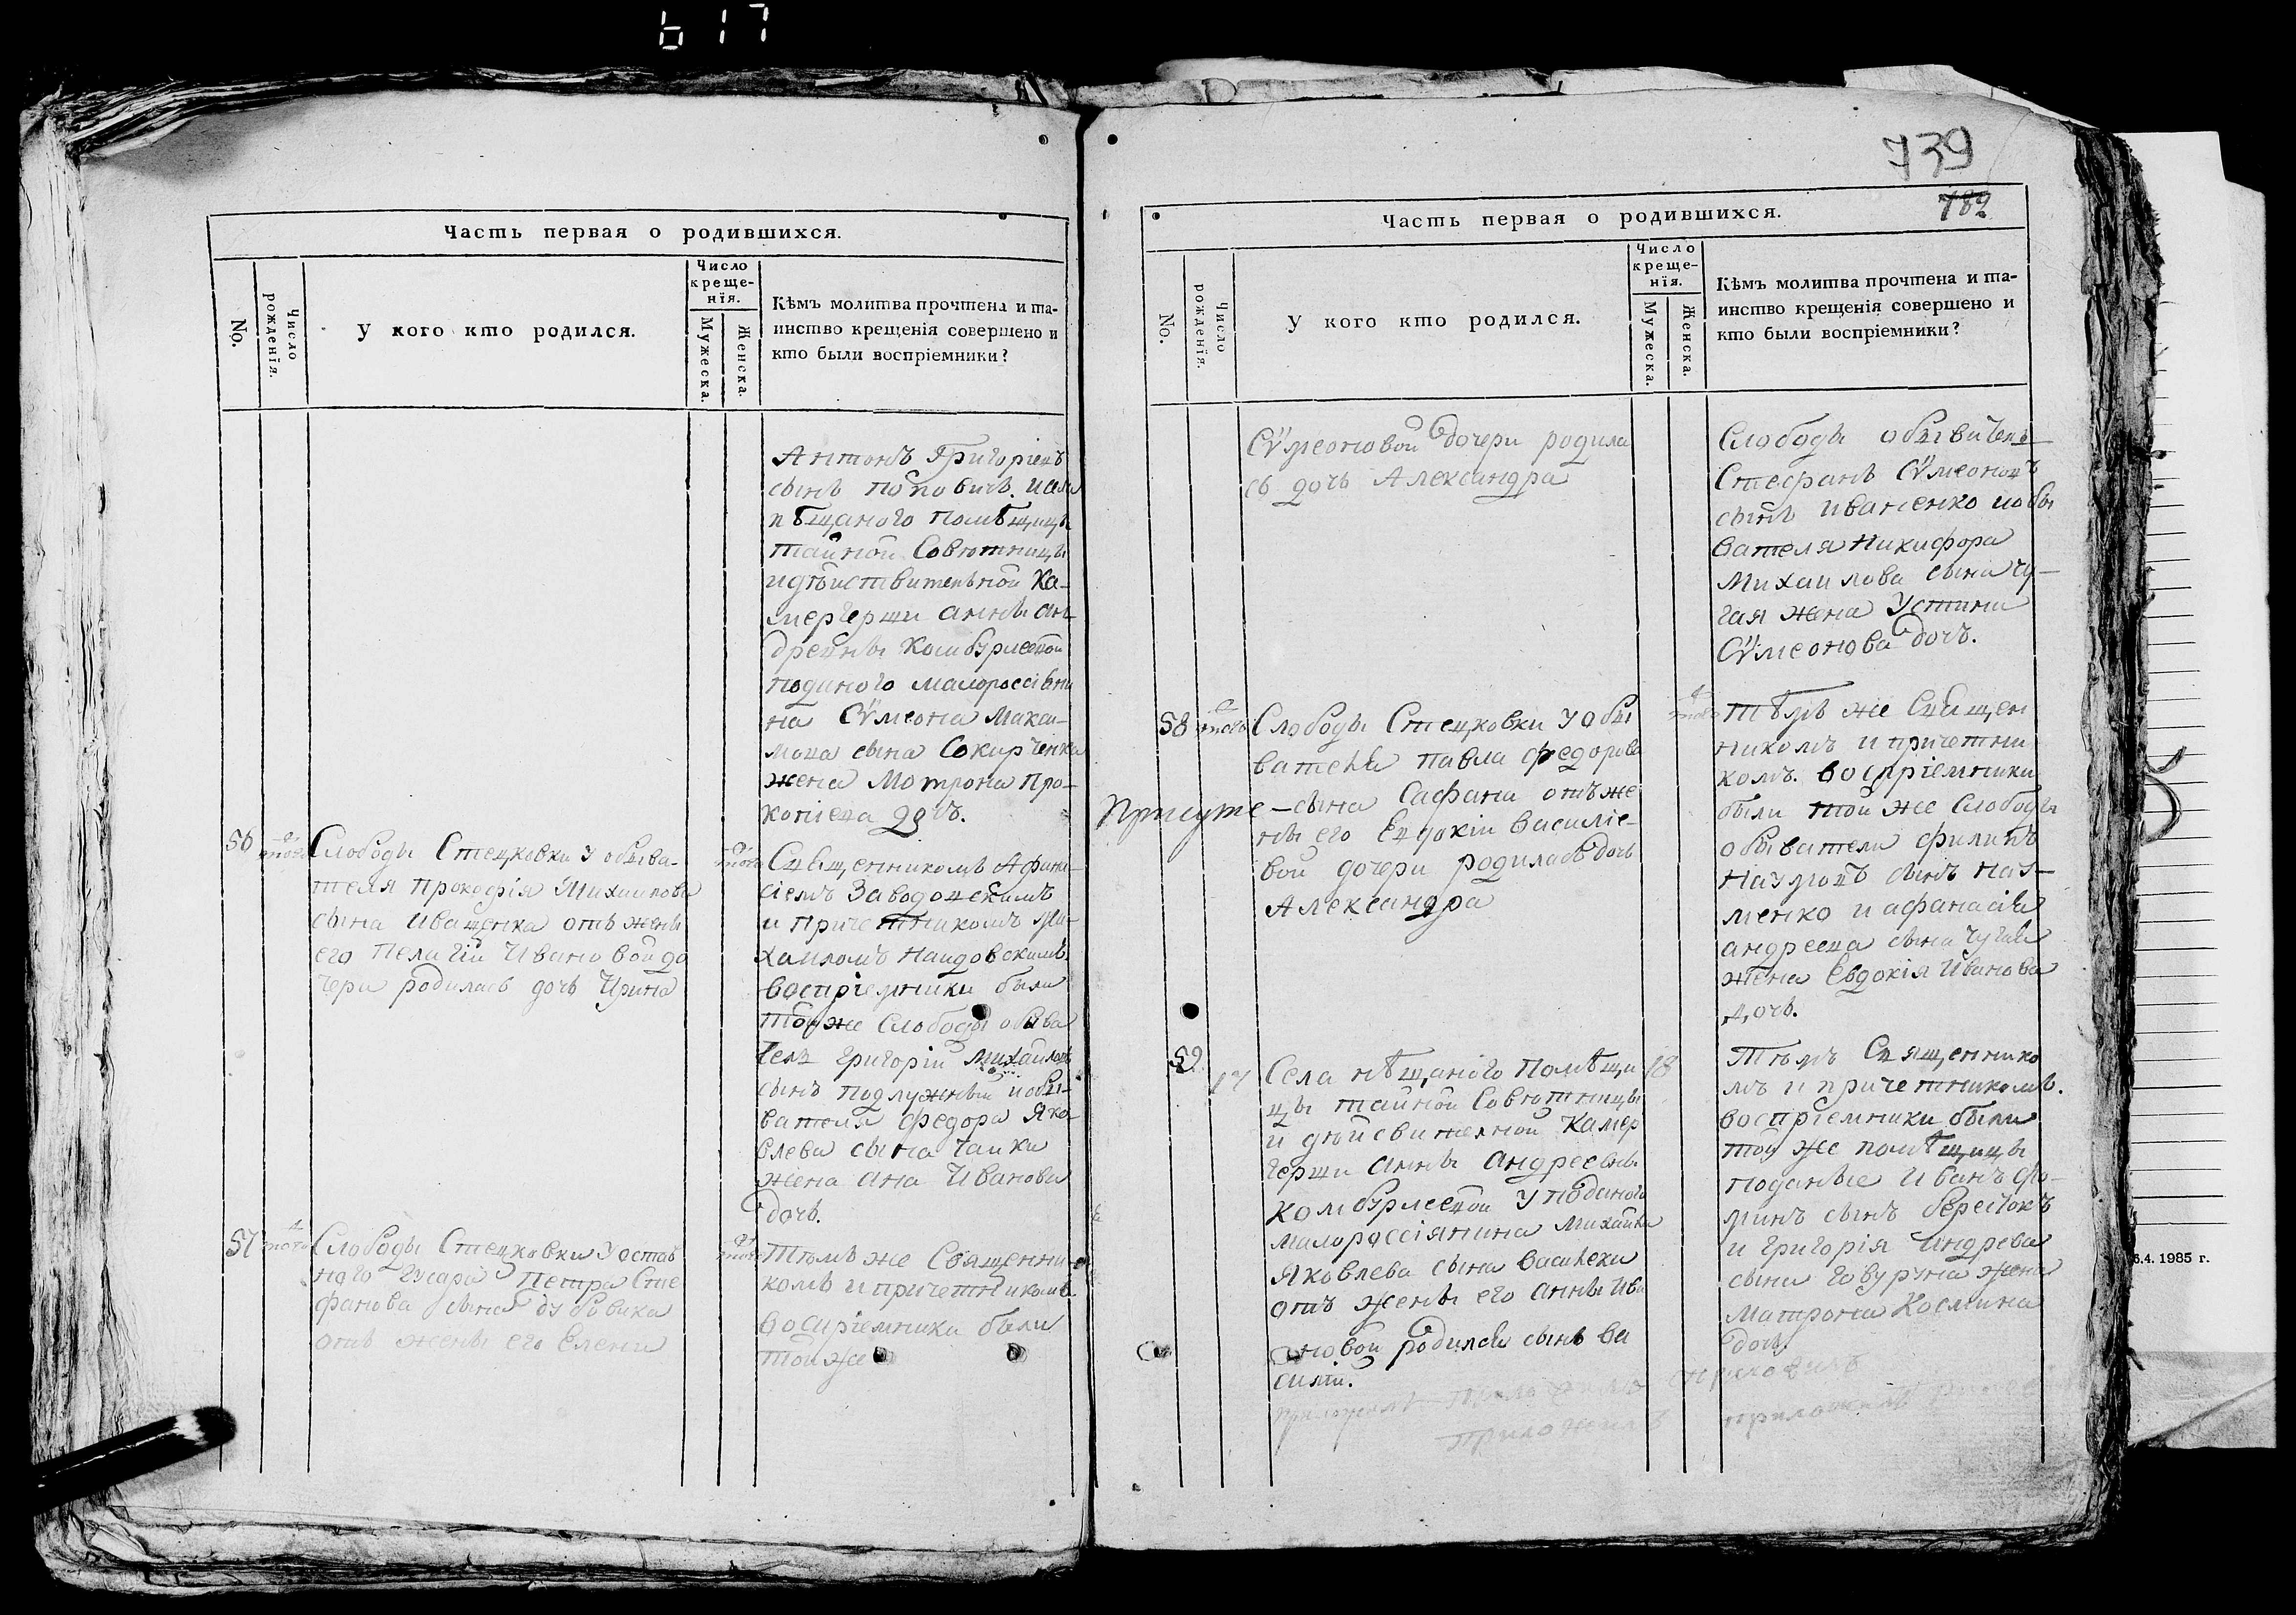 617
Часть первая о родившихся.
No.
Число рожденія.
У кого кто родился.
Число креще-
нія.
Мужеска.
Женска.
Кѣмъ молитва прочтена и та-
инство крещенія совершено и
кто были воспріемники?
Антонъ Григоріевъ
сынъ Поповичъ. и села
нѣщаного Помѣщицы
тайной Совютницы
и дѣйствительной Ка-
мергерши Анны Ан-
дреевны Комбурлеевой
подчного малороссіяни
на Сѵмеона Макси-
мова сына Сокирченка
жена Мотрона Про-
копіева дочъ.
56
того
Слободы Стецковки у обыва-
теля Прокофія Михаилова
сына Иващенка отъ жены
его Пелагіи Ивановой до
чери родилась дочь Ирина
того
Священникомъ Афана-
сіемъ Заводовскимъ
и причетникомъ Ми-
хаиломъ Наидовскимъ
воспріемники были
той же Слободы обыва
тель Григорій Михайловъ
сынъ Подлужный и обы-
вателя Федора Яко-
влева сына Чаики
жена Ана Иванова
дочь.
57
того
Слободы Стецковки у остав
ного Гусара Петра Сте
фанова сына Дубовика
отъ жены его Елени
того
Тюмъ же Священни-
комъ и причетникомъ
воспріемники были
той же
739
782
Часть первая о родившихся.
No.
Число рожденія.
У кого кто родился.
Число
креще-
нія.
Мужеска.
Женска.
Кѣмъ молитва прочтена и та-
инство крещенія совершено и
кто были воспріемники?
Сѵмеоновой дочери родила
сь дочь Александра
Слободы обыватель
Стефанъ Сѵмеоновъ
сынъ Иваненко и обы
вателя Никифора
Михаилова сына Чу-
гая жена Устина
Сѵмеонова дочъ.
58
того
Слободы Стецковки у обы
вателя Павла Федорова
сына Сафана отъ же
ны его Евдокіи Василіе-
вой дочери родилась дочь
Александра
того
Тѣмъ же Священ
никомъ и причетни
комъ. воспріемники
были той же Слободы
обыватели Филипъ
Наумовъ сынъ Нау-
менко и Афанасія
Андреева сына Чугая
жена Евдокія Иванова
дочь.
59
17
Села нѣщаного Помѣщи
цы тайной Совютницы
и дѣйсвителной Камер
герши Анны Андреевны
Комбурлеевой у подданого
малороссіянина Михаила
Яковлева сына Василека
отъ жены его Анны Ива
новой родился сынъ Ва
силій.
18
Тюмъ Священнико
мъ и причетникомъ.
воспріемники были
той же помѣщицы
поданые Иванъ Фо-
минъ сынъ Берестокъ
и Григорія Андрева
сына Говуруна жена
Матрона Космина
дочь.
приложилъ
приложилъ
5.4. 1985 г.